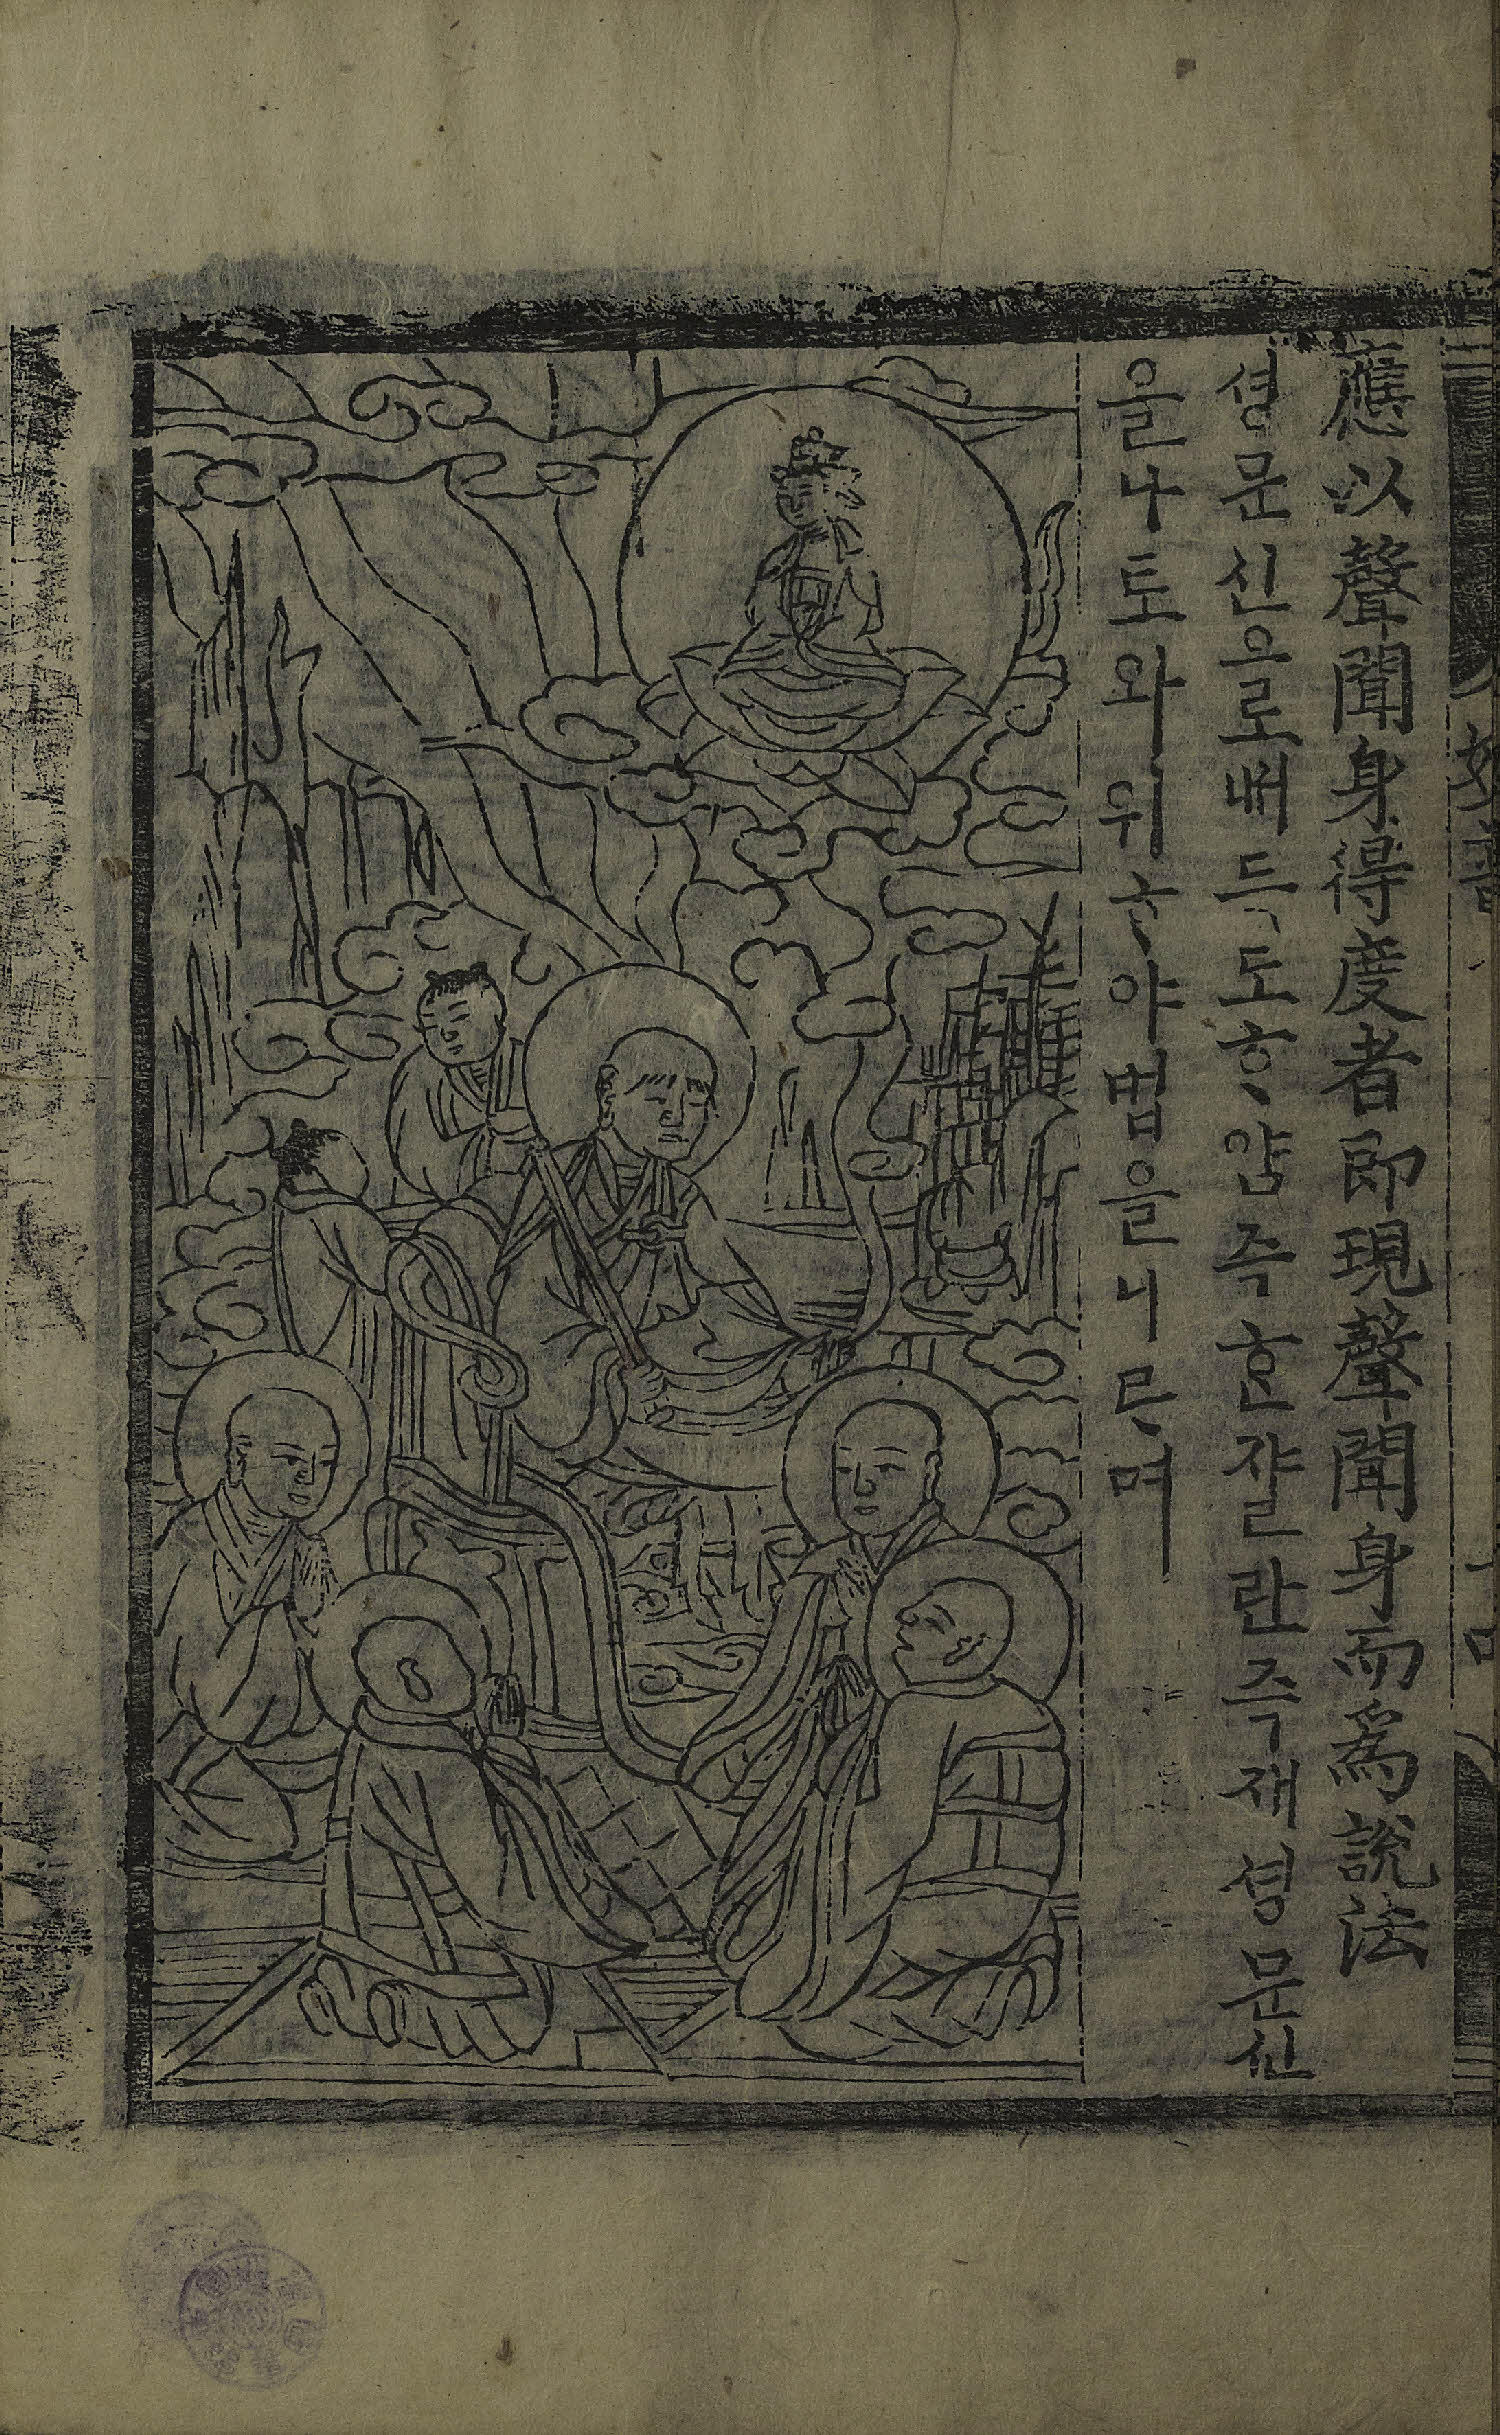 應以聲聞身得度者即現聲聞身而爲說法
셩문신으로ᄡᅥ득도ᄒᆞ얌즉ᄒᆞᆫ쟐란즉재셩문신
을나토와위ᄒᆞ야법을니ᄅᆞ며